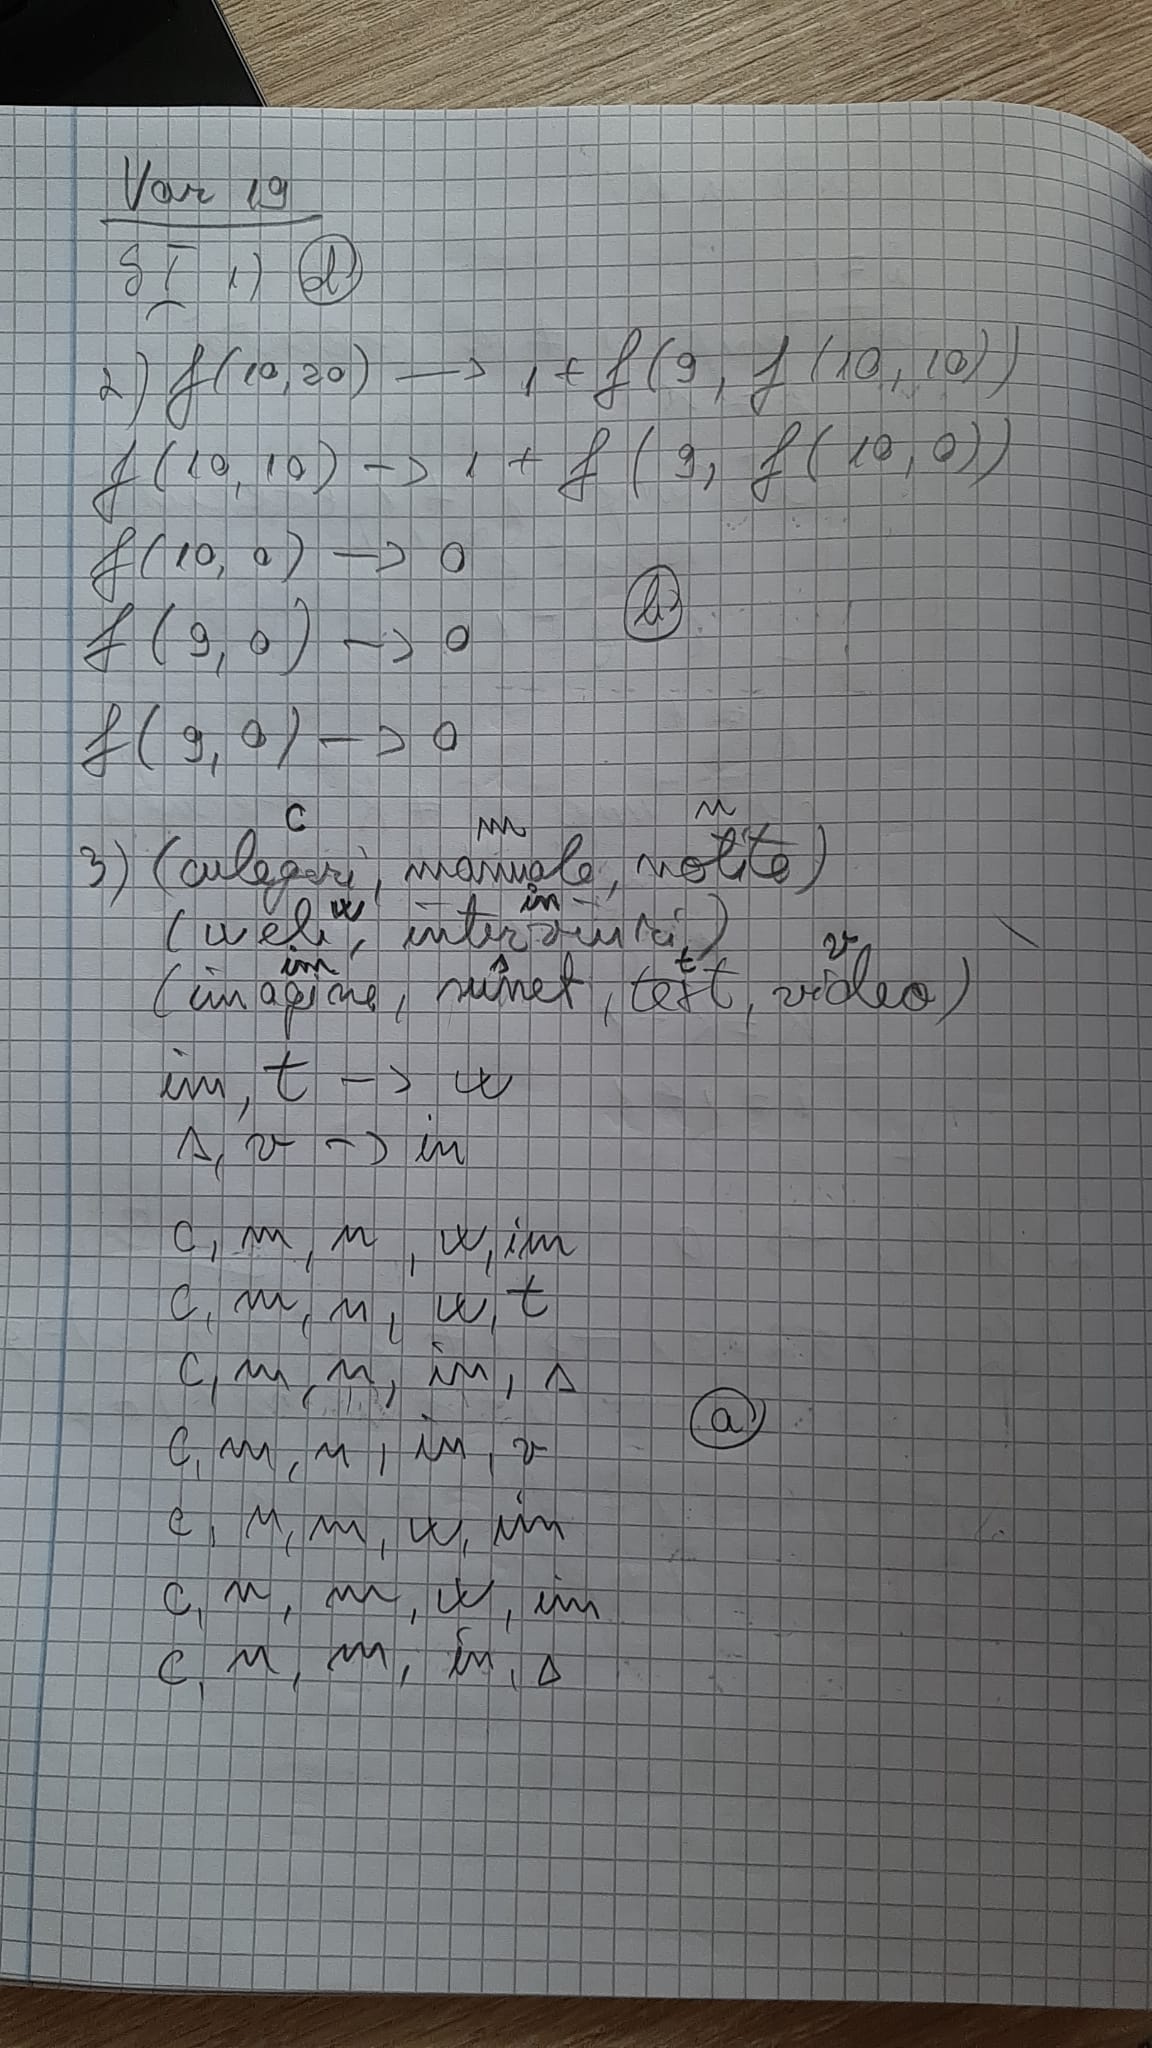 Var 19
S I 1) d
2) f(10,20) -> 1 + f(9, f(10,10))
f(10,10) -> 1 + f(9, f(10,0))
f(10,0) -> 0
f(9,0) -> 0
b
f(9,0) -> 0
c m n
3) (culegeri, manuale, notițe)
w in
(web, interviuri)
im s t v
(imagine, sunet, text, video)
im, t -> w
s, v -> in
c, m, n, w, im
c, m, n, w, t
c, m, n, in, s
a
c, m, n, in, v
c, n, m, w, im
c, n, m, w, im
c, n, m, in, s